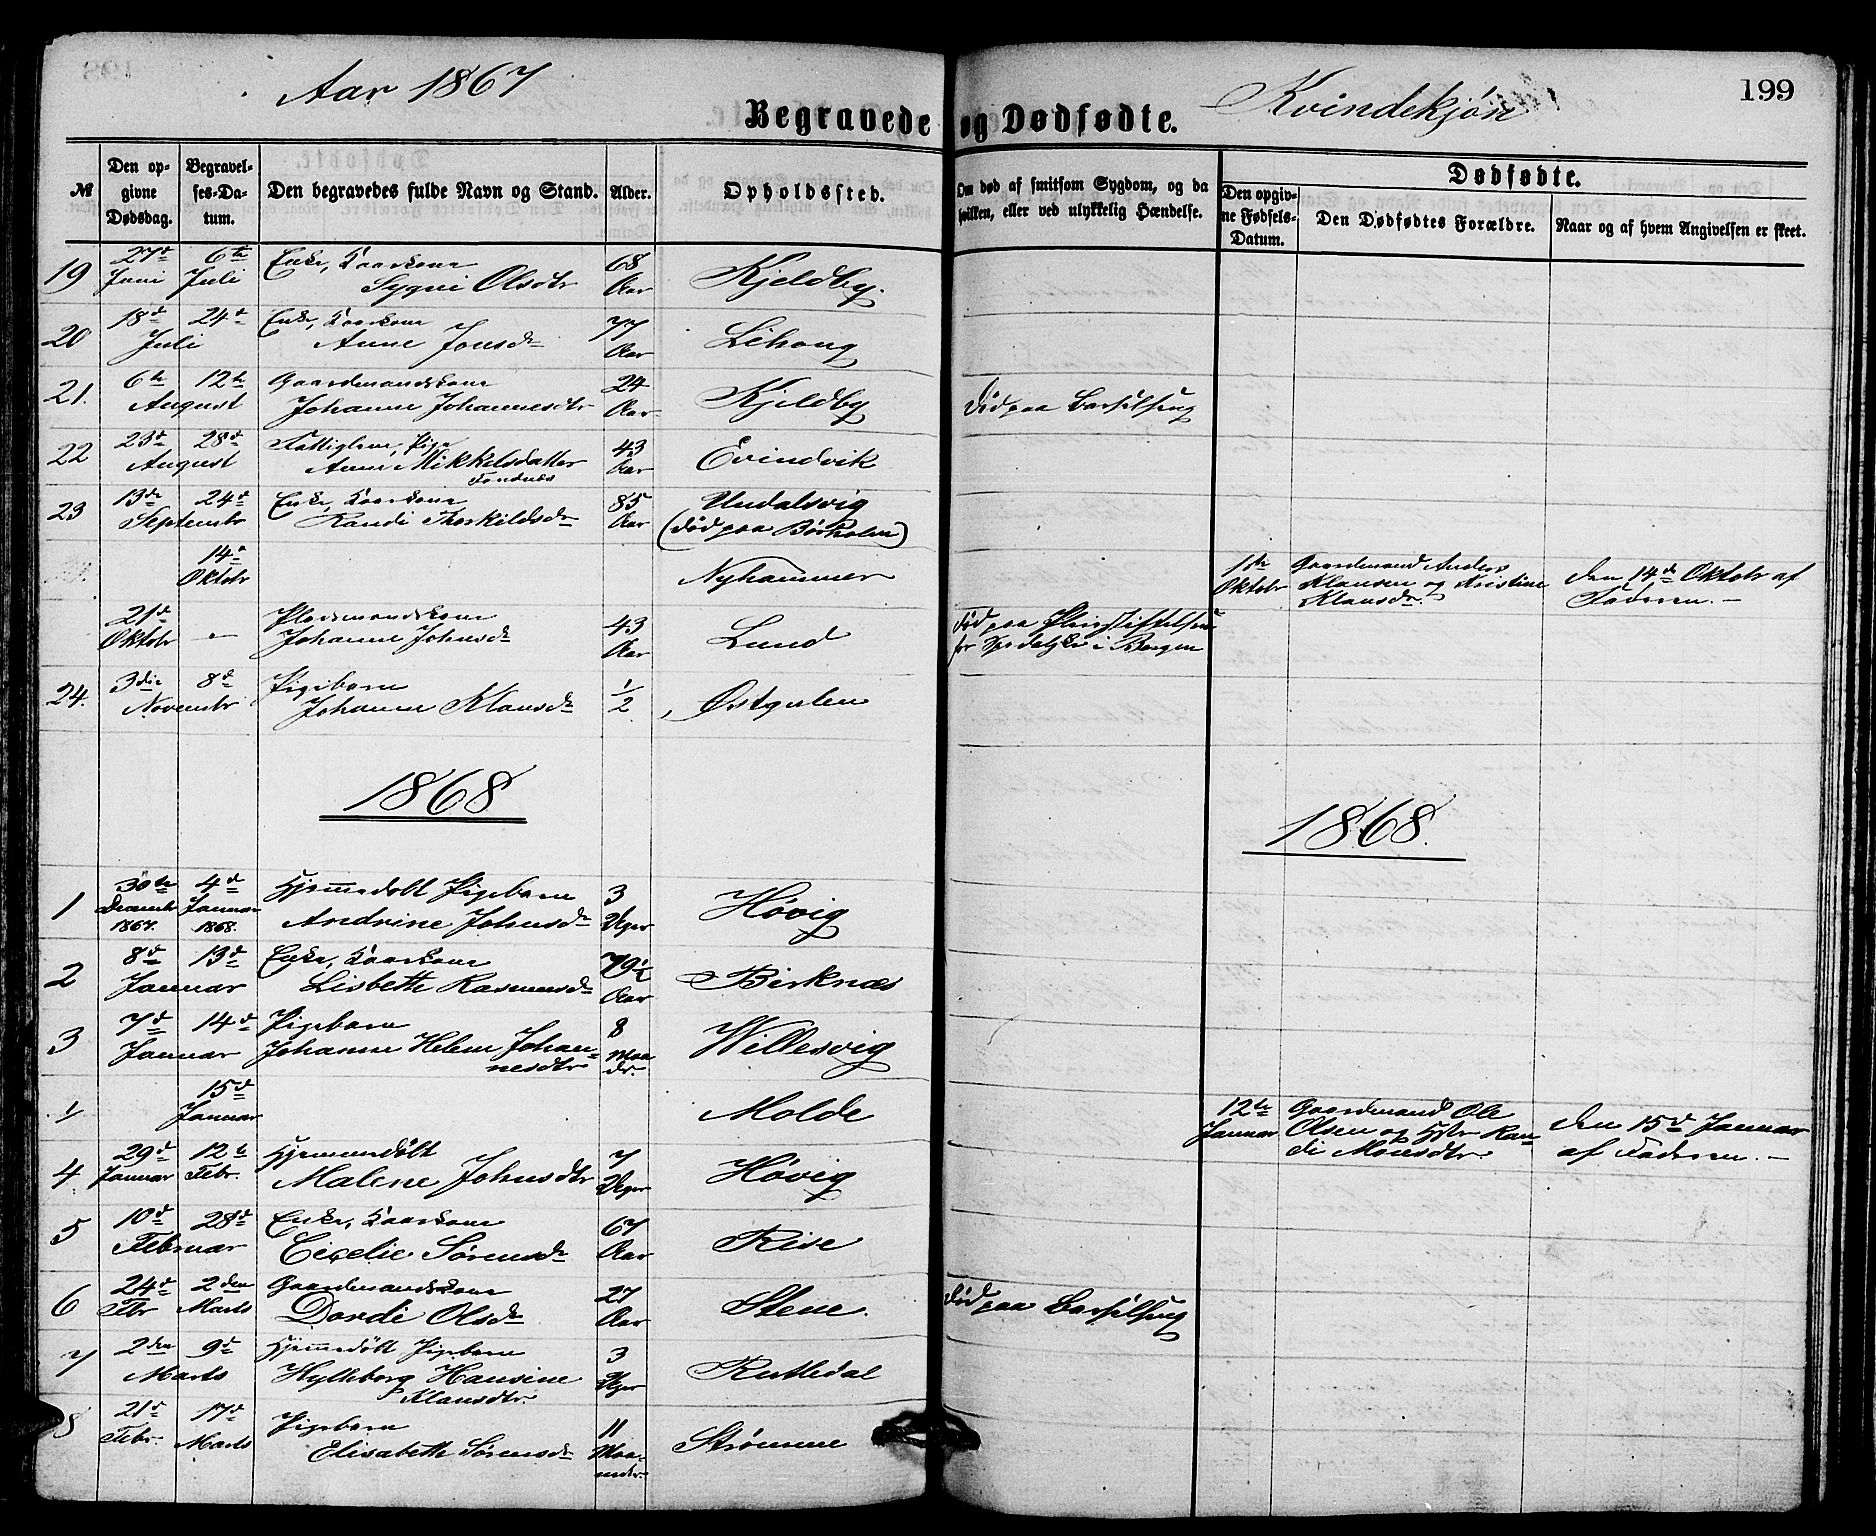 Aar 1867
Begravede og Dødfødte.
Kvindekjøn
199
№
Den opgivne Dødsdag.
Begravelses-Datum.
Den begravedes fulde Navn og Stand.
Alder.
Opholdssted.
Om død af smitsom Sygdom, og da hvilken, eller ved ulykkelig Hændelse.
Dødfødte.
Den opgivne Fødsels-Datum.
Den Dødfødtes Forældre.
Naar og af hvem Angivelsen er skeet.
19 27de Juni 6te Juli Enke, Kaarkone Sygni Olsdtr 68 Aar Kjeldby.
20 18de 24de Juli Enke, Kaarkone Anne Jonsdr 77 Aar Lihoug
21. 6te 12te August Gaardmandskone Johanne Johannesdtr 24 Aar Kjeldby Død paa Barselseng
22 23de 28de August Fattiglem, Pige Anne Mikkelsdatter 43 Aar Evindvik
23 13de 24de Septembr Enke, Kaarkone Randi Thorkildsdr 85 Aar Undalsvig
(død paa Børholm)
14de Oktobr Nyhammer 1te Oktobr Gaardmand Anders Klausen og Kristine Klausdr. den 14de Oktobr af Faderen.
21de Oktobr - Pladsmandskone Johanne Johnsdr 43 Aar Lund Død paa Pleiestiftelsen
for Spedalske i Bergen
24. 3die 8de Novembr Pigebarn Johanne Klausdr 1/2 Østgulen
1868
1868.
1 30te Decembr 1867. 4de Januar 1868. Hjemmedøbt Pigebarn Andrine Johnsdr 3 Uger Høvig
2 8de 13de Januar Enke, Kaarkone Lisbette Rasmusdr 79½ Aar Birknæs
3 7de 14de Januar Pigebarn Johanne Helene Johannesdtr 8 Maadr. Willesvig
1/ 15de Januar Molde 12te Januar Gaardmand Ole Olsen og Hstr Randi Monsdtr den 15de Januar af Faderen.
4 29de Januar 12te Febr. Hjemmedøbt Malene Johnsdtr 7 Uger Høvig
5 10de 28de Februar Enke, Kaarkone Cicelie Sørensdr 67 Aar Rise
6 24de Febr 2den Marts Gaardmandskone Dordi Olsdr 27 Aar Stene. Død paa Barselseng
7 2den 9de Marts Hjemmedøbt Pigebarn Hylleborg Hansine Klausdtr. 3 Uger Rutledal
8 21de Febr. 17de Marts Pigebarn Elisabeth Sørensdr 11 Maanedr. Strømme